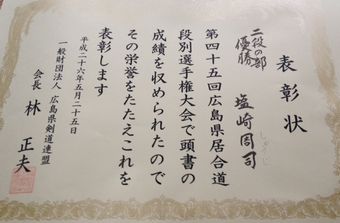 表彰状
二段の部
優勝
塩崎周司
第四十五回広島県居合道
段別選手権大会で頭書の
成績を収められたので
その栄誉をたたえこれを
表彰します
平成二十六年五月二十五日
一般財団法人 広島県剣道連盟
会長 林 正夫